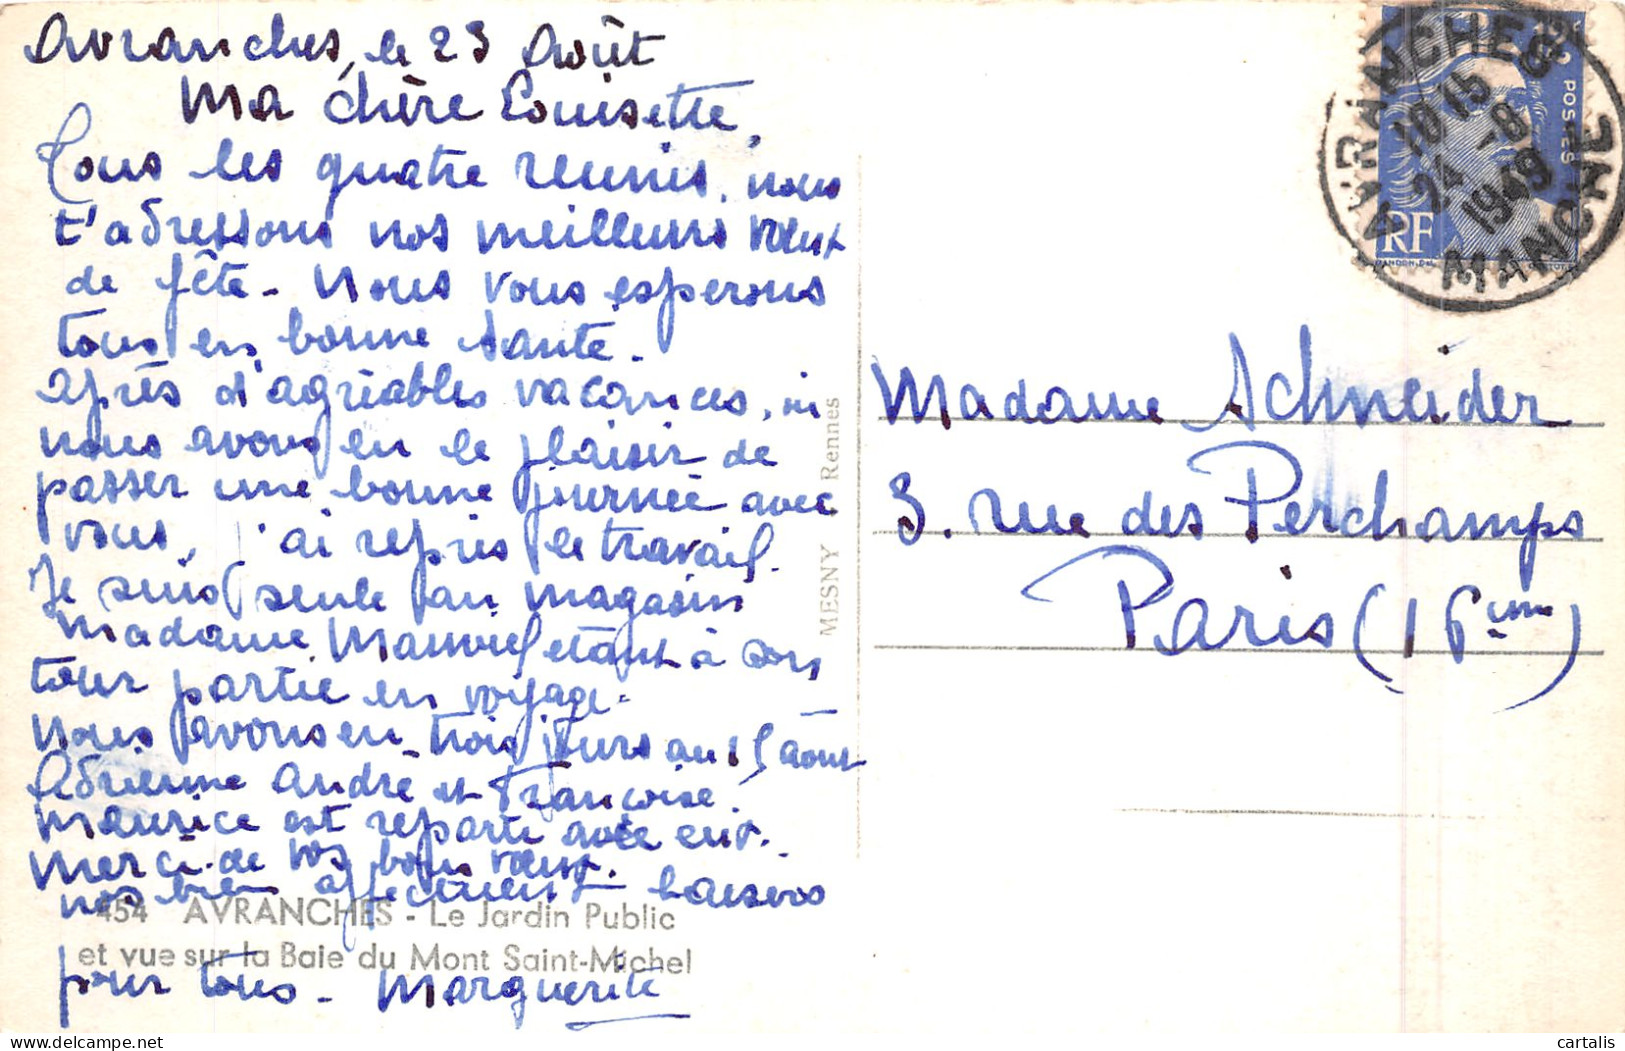 Avranches, le 23 Août
Ma chère Louisette,
Tous les quatre reunis, nous
t'adressons nos meilleurs vœux
de fête - Nous vous esperons
tous en bonne santé.
Après d'agréables vacances, où
nous avons eu le plaisir de
passer une bonne journée avec
vous, j'ai repris le travail.
Je suis seule au magasin
Madame étant à son
tour partie en voyage.
Nous avons eu trois jours au 15 août
Adrienne André et Françoise.
Maurice est reparti avec eux.
Merci de vos bons vœux.
nos bien affectueux baisers
pour tous - Marguerite
454 AVRANCHES - Le Jardin Public
et vue sur la Baie du Mont Saint-Michel
MESNY Rennes
AVRANCHES
10 15
24 -8
1949
MANCHE
POSTES
RF
GANDON DEL
Madame Schneider
3. rue des Perchamps
Paris (16ème)
cartalis